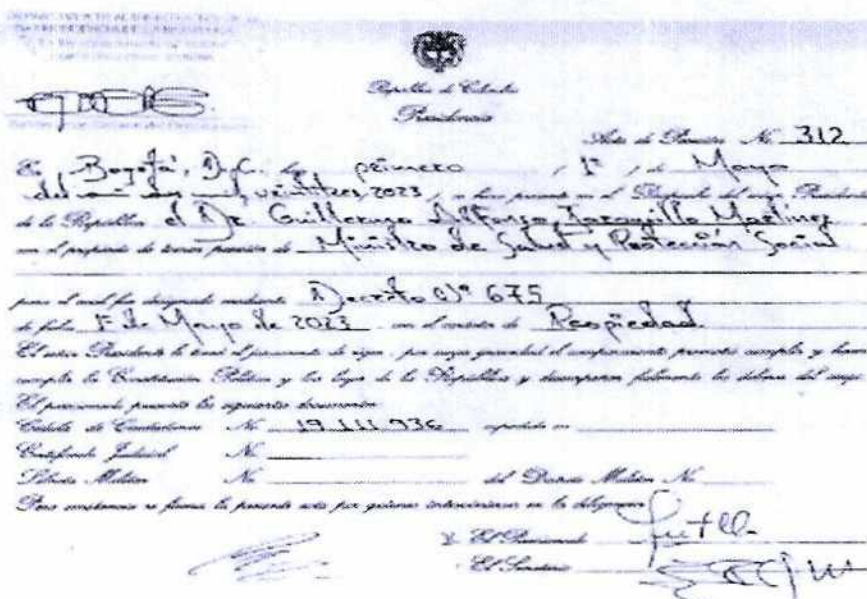 República de Colombia
Presidencia
Acta de Posesión No 312
En Bogotá, D.C. a primero, 1º, de Mayo
del año dos mil veintitres, 2023, se hizo presente en el Despacho del señor Presidente
de la República el Dr Guillermo Alfonso Jaramillo Martínez
con el propósito de tomar posesión de Ministro de Salud y Protección Social
para el cual fue designado mediante Decreto Nº 675
de fecha 1º de Mayo de 2023 con el carácter de Propiedad
El señor Presidente le tomó el juramento de rigor, por cuya gravedad el compareciente prometió cumplir y hacer
cumplir la Constitución Política y las leyes de la República y desempeñar fielmente los deberes del cargo
El posesionado presentó los siguientes documentos
Cédula de Ciudadanía No 19.111.936 expedida en
Certificado Judicial No
Libreta Militar No del Distrito Militar No
Para constancia se firma la presente acta por quienes intervinieron en la diligencia
El Posesionado
El Secretario